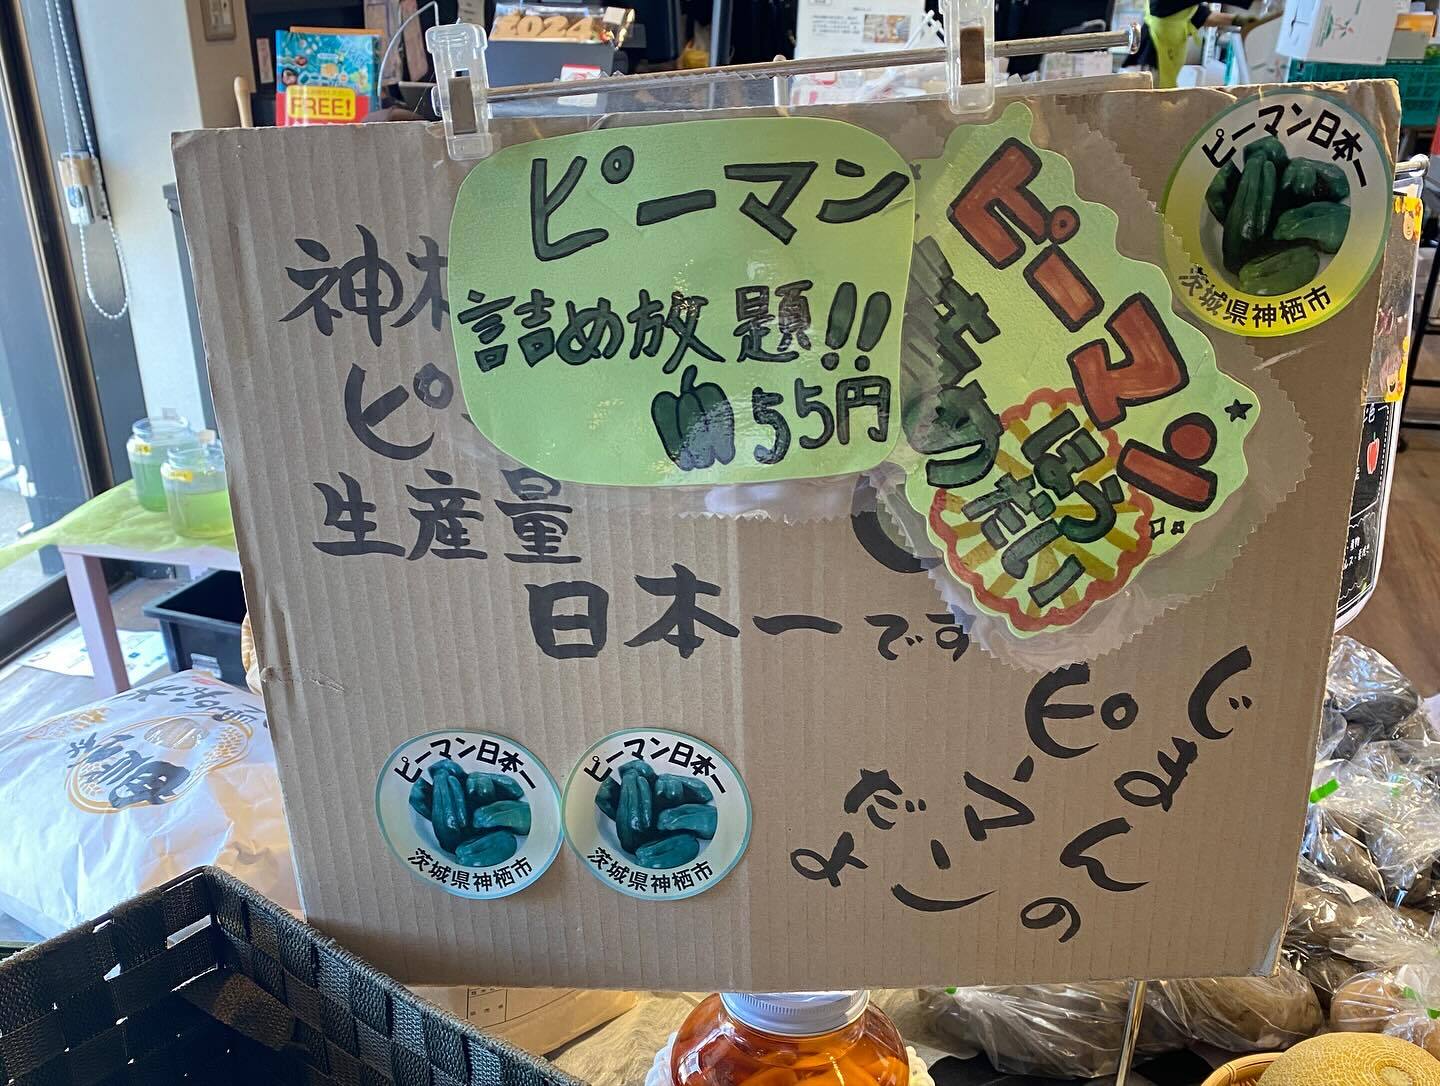 2024
FREE!
ピーマン
詰め放題!!
55円
ピーマン
つめ
ほう
だい
ピーマン日本一
茨城県神栖市
神栖
ピ
生産量
日本一です
じまんの
ピーマン
だよ
ピーマン日本一
茨城県神栖市
ピーマン日本一
茨城県神栖市